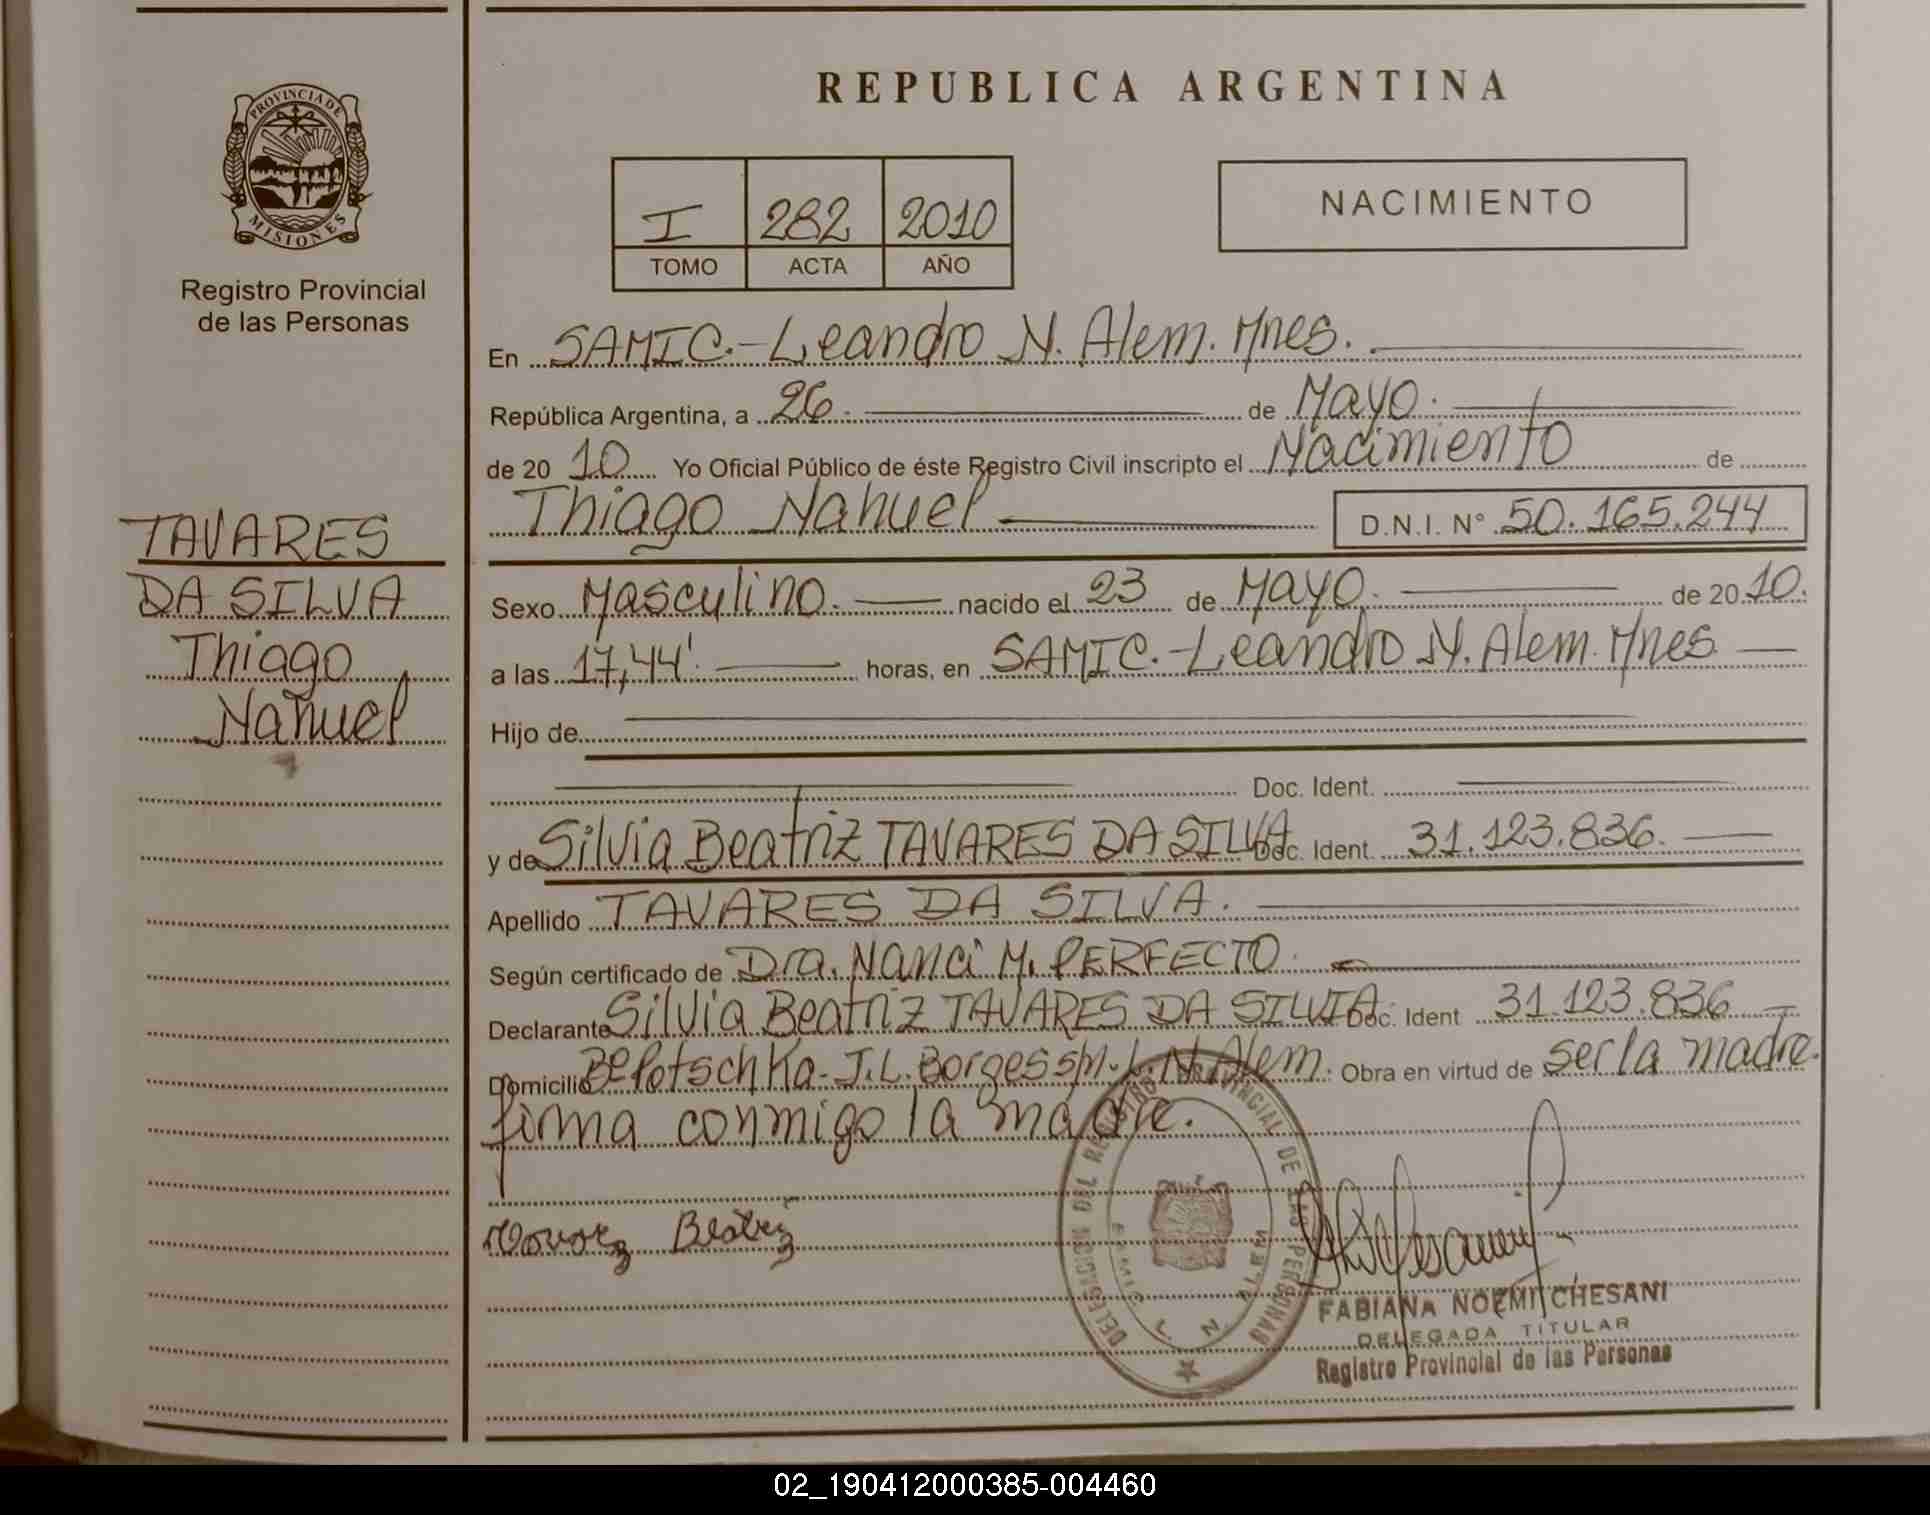 REPUBLICA ARGENTINA
PROVINCIA DE MISIONES
Registro Provincial
de las Personas
I 282 2010
TOMO ACTA AÑO
NACIMIENTO
En SAMIC.-Leandro N. Alem. Mnes.
República Argentina, a 26. de Mayo.
de 20 10 Yo Oficial Público de éste Registro Civil inscripto el Nacimiento de
Thiago Nahuel D.N.I. N° 50.165.244
TAVARES
DA SILVA
Thiago
Nahuel
Sexo Masculino. nacido el 23 de Mayo. de 20 10.
a las 17,44'. horas, en SAMIC.-Leandro N. Alem. Mnes
Hijo de
Doc. Ident.
y de Silvia Beatriz TAVARES DA SILVA Doc. Ident. 31.123.836.
Apellido TAVARES DA SILVA.
Según certificado de Dra. Nanci M. PERFECTO.
Declarante Silvia Beatriz TAVARES DA SILVIA Doc. Ident 31.123.836
Domicilio J.L. Borges s/n. L. N. Alem. Obra en virtud de ser la madre.
firma conmigo la madre.
Beatriz
DELEGACION DEL REGISTRO PROVINCIAL DE LAS PERSONAS
SAMIC L. N. ALEM
FABIANA NOEMI CHESANI
DELEGADA TITULAR
Registro Provincial de las Personas
02_190412000385-004460